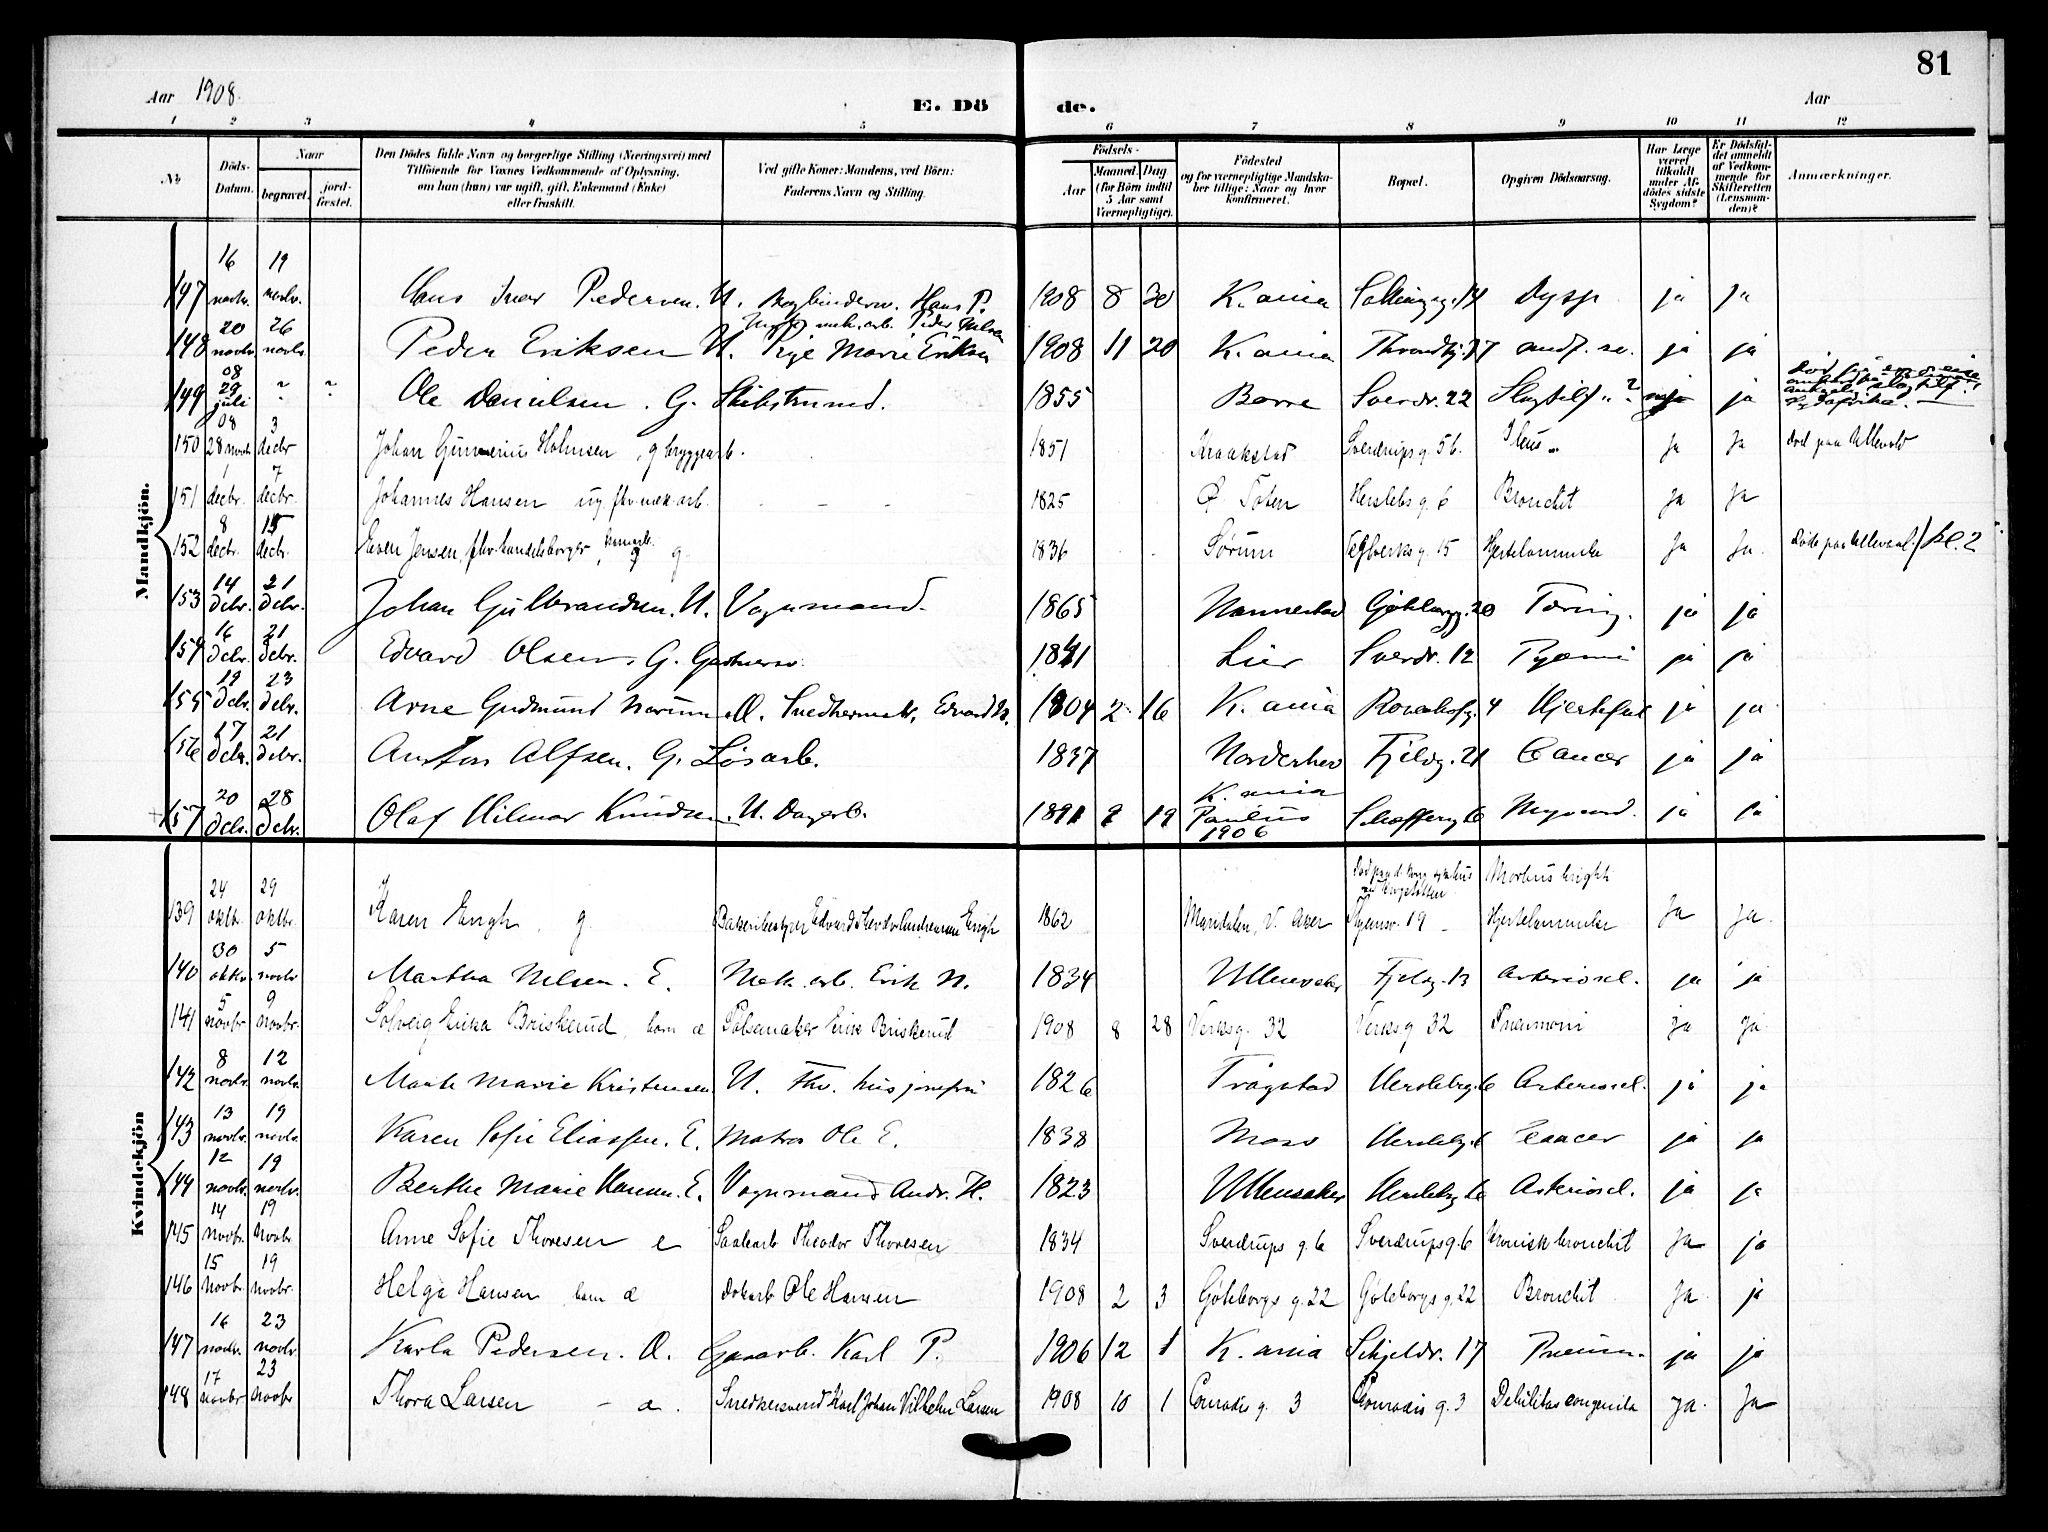 81
Aar 1908.
E. Dö de.
Aar
1 2 3 4 5 6 7 8 9 10 11 12
No.
Döds-Datum.
Naar
begravet.
jord-fæstet.
Den Dödes fulde Navn og borgerlige Stilling (Næringsvei) med
Tilföiende for Voxnes Vedkommende af Oplysning,
om han (hun) var ugift, gift, Enkemand (Enke)
eller fraskilt.
Ved gifte Koner: Mandens, ved Börn:
Faderens Navn og Stilling.
Födsels-
Aar
Maaned. Dag
(for Börn indtil
5 Aar samt
Værnepligtige).
Födested
og for værnepligtige Mandska-
ber tillige: Naar og hvor
konfirmeret.
Bopæl.
Opgiven Dödsaarsag.
Har Læge
været
tilkaldt
under Af-
dödes sidste
Sygdom?
Er Dödsfal-
det anmeldt
af Vedkom-
mende for
Skifteretten
(Lensman-
den)?
Anmærkninger.
Mandkjön.
147 16 novbr. 19 novbr. Hans Ivar Pedersen. U. Bogbindersv. Hans P. 1908 8 30 K.ania 14 Dysp ja ja
148 20 novbr. 26 novbr. Peder Eriksen U. mek. arb. Peder Nelsen Pige Marie Eriksen 1908 11 20 K.ania 17 medf. sv. ja ja
149 08 29 juli Ole Danielsen. G. Skibstømmd. 1855 Borre Sverdr. 22 Slagtilf ? ja
150 08 28 novbr 3 decbr Johan Gunnerius Holmsen, g bryggearb. 1851 Kraakstad Sverdrups g. 56. Ileus Ja Ja Död paa Ullevold
151 1 decbr. 7 decbr. Johannes Hansen ug. fhv. mek. arb. 1825 Ø Toten Herslebs g. 6 Bronchit Ja Ja
152 8 decbr. 15 decbr. Even Jensen, fhv. handelsborger, g 1836 Sørum Teglverks g. 15 Hjertelammelse Ja Ja. Døde paa Ullevaal. / kl. 2
153 14 Debr. 21 Debr. Johan Gulbrandsen. U. Vognmand. 1865 Nannestad Gøteborgg. 20 Tæring. ja ja
154 16 Debr. 21 Debr. Edvard Olsen. G. Gartnersv. 1841 Lier Sverdr. 12 Pyæmi ja ja
155 19 Debr. 23 Debr. Arne Gudmund Narum. Æ. Snedkermstr. Edvard N. 1904 2 16 K.ania Rosenhofg. 4 Hjertefeil ja ja
156 17 Debr. 21 Debr. Anton Alfsen. G. Løsarb. 1837 Norderhov Fjeldg. 21 Cancer ja ja
157 20 Debr. 28 Debr. Olaf Hilmar Knudsen. U. Dagarb. 1891 2 19 K.ania Paulus 1906 Schefferg. 6 Myocard. ja ja
Kvindekjön
139 24 oktbr. 29 oktbr. Karen Engh, g. Bakeribestyrer Edvard Theodor Andreassen Engh 1862 Maridalen, V. Aker 19 Morbus brighti Hjertelammelse Ja Ja.
140 30 oktbr. 5 novbr Martha Nilsen. E. Mek. arb. Erik N. 1834 Ullensaker Fjeldg. 13 Arterioscl. ja ja
141 5 novbr 9 novbr. Solveig Erika Briskerud, barn æ Pølsemaker Erik Briskerud 1908 8 28 Verksg. 32 Verksg 32 Pneumoni Ja Ja.
142 8 novbr. 12 novbr. Marte Marie Kristensen U. Fhv. husjomfru 1826 Trøgstad Herslebsg. 6 Arterioscl. ja ja
143 13 novbr. 19 novbr. Karen Sofie Eliassen. E. Matros Ole E. 1838 Moss Herslebsg. 6 Cancer ja ja
144 12 novbr. 19 novbr. Berthe Marie Hansen. E. Vognmand Andr. H. 1823 Ullensaker Herslebsg 6 Arterioscl. ja ja
145 14 novbr. 19 novbr. Anne Sofie Thoresen e Theodor Thoresen 1834 Sverdrups g. 6 Sverdrups g. 6 Kronisk bronchit Ja ja
146 15 novbr 19 novbr. Helga Hansen, barn æ Dokarb Ole Hansen 1908 2 3 Göteborgs g. 22 Göteborgs g. 22 Bronchit Ja ja
147 16 novbr. 23 novbr. Karla Pedersen. Æ. Gasarb. Karl P. 1906 12 1 K.ania Schjeldr. 17 Pneum. ja ja
148 17 novbr 23 novbr Thora Larsen - æ. Snedkersvend Karl Johan Vilhelm Larsen 1908 10 1 Conradis g. 3 Conradis g. 3 Debilitas congenita Ja. Ja